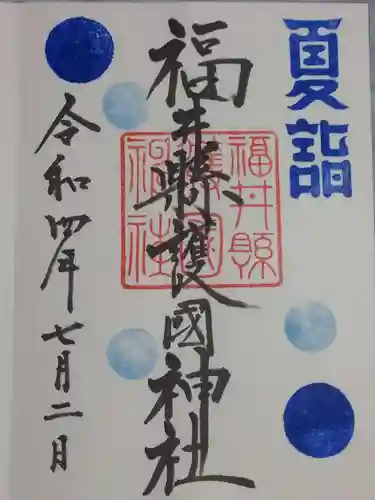 夏詣
福井縣護國神社
福井縣護國神社
令和四年七月二日